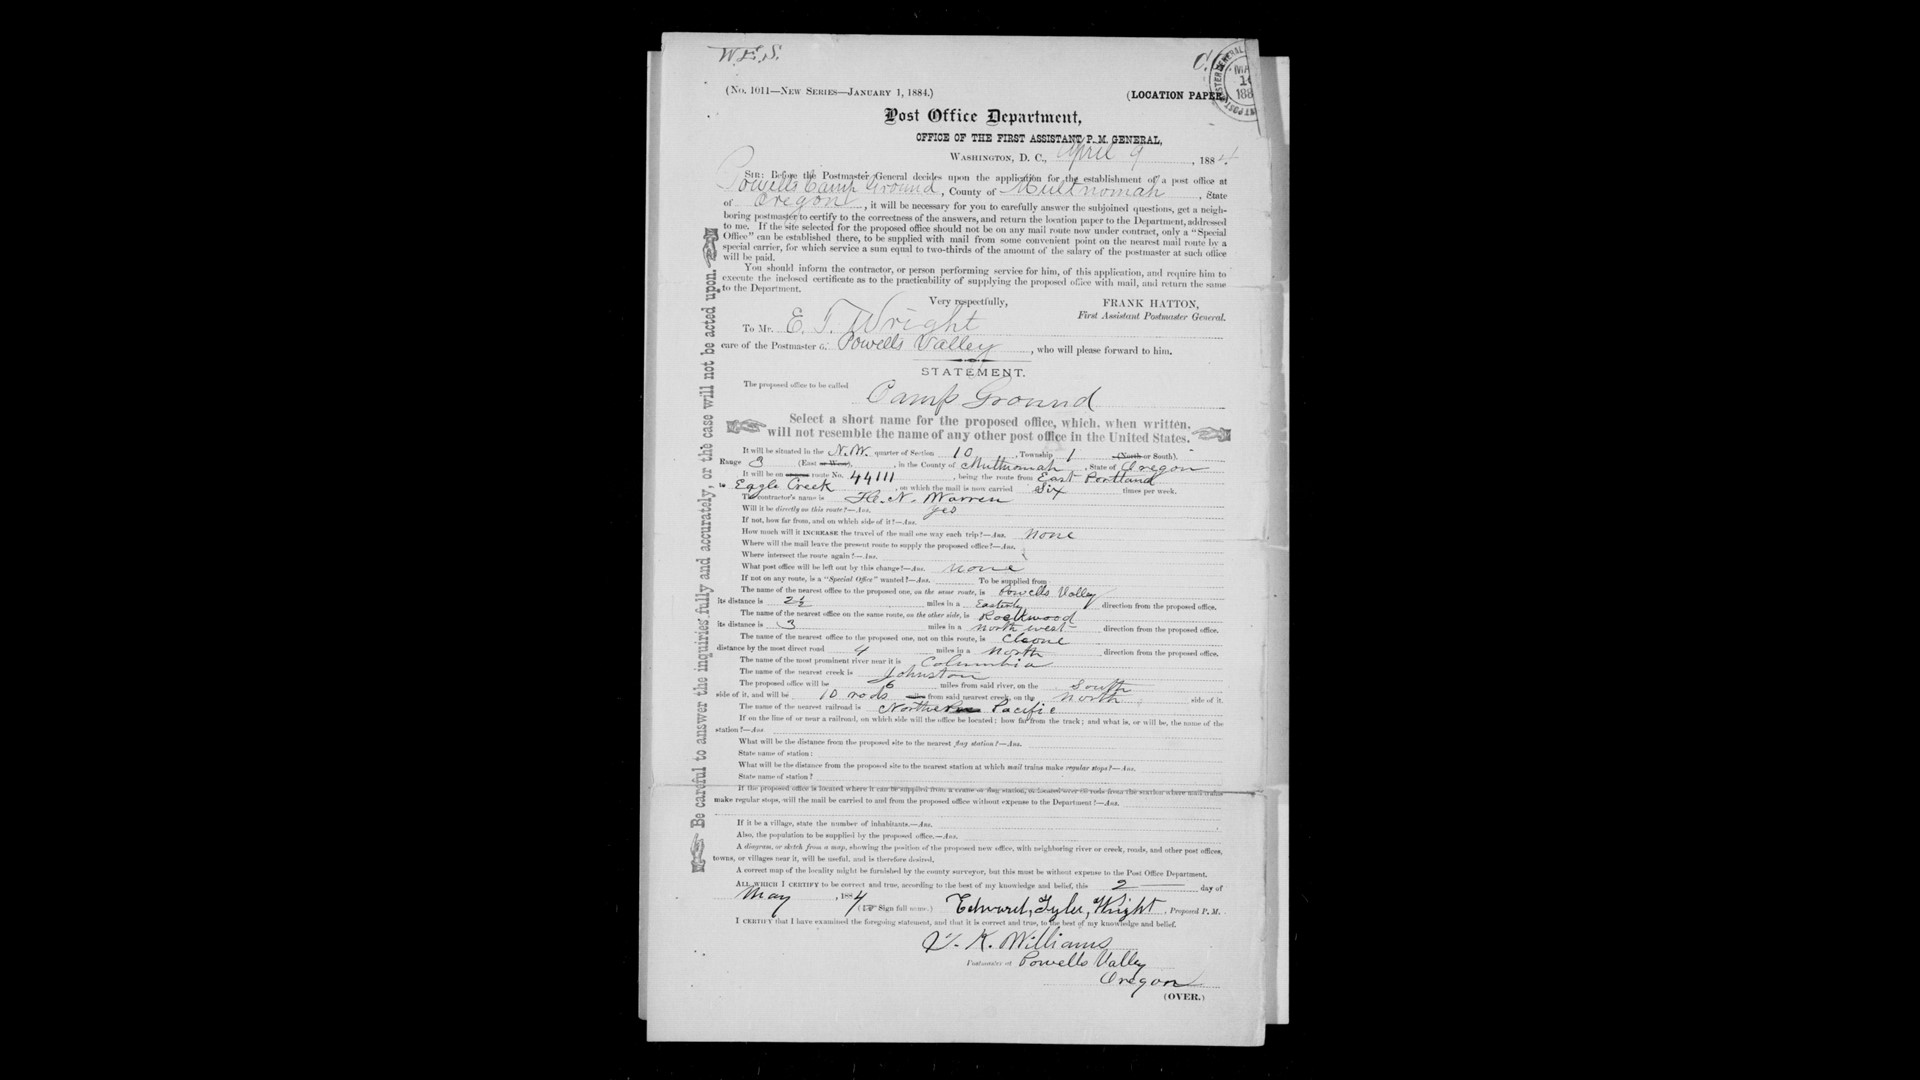 W.E.S.
(No. 1011—New Series—January 1, 1884.)
(LOCATION PAPER
Post Office Department,
OFFICE OF THE FIRST ASSISTANT P. M. GENERAL,
Washington, D. C., April 9, 1884.
Sir: Before the Postmaster General decides upon the application for the establishment of a post office at
Powells Camp Ground, County of Multnomah, State
of Oregon, it will be necessary for you to carefully answer the subjoined questions, get a neigh-
boring postmaster to certify to the correctness of the answers, and return the location paper to the Department, addressed
to me. If the site selected for the proposed office should not be on any mail route now under contract, only a "Special
Office" can be established there, to be supplied with mail from some convenient point on the nearest mail route by a
special carrier, for which service a sum equal to two-thirds of the amount of the salary of the postmaster at such office
will be paid.
You should inform the contractor, or person performing service for him, of this application, and require him to
execute the inclosed certificate as to the practicability of supplying the proposed office with mail, and return the same
to the Department.
Very respectfully,
FRANK HATTON,
First Assistant Postmaster General.
To Mr. E. T. Wright
care of the Postmaster o. Powells Valley, who will please forward to him.
STATEMENT.
The proposed office to be called Camp Ground
Select a short name for the proposed office, which, when written,
will not resemble the name of any other post office in the United States.
It will be situated in the N.W. quarter of Section 10, Township 1 (North or South),
Range 3 (East or West), in the County of Multnomah, State of Oregon
It will be on route No. 44111, being the route from East Portland
to Eagle Creek, on which the mail is now carried Six times per week.
The contractor's name is H. N. Warren
Will it be directly on this route?—Ans. yes
If not, how far from, and on which side of it?—Ans.
How much will it INCREASE the travel of the mail one way each trip?—Ans. none
Where will the mail leave the present route to supply the proposed office?—Ans.
Where intersect the route again?—Ans.
What post office will be left out by this change?—Ans. none
If not on any route, is a "Special Office" wanted?—Ans. To be supplied from
The name of the nearest office to the proposed one, on the same route, is Powells Valley
its distance is 2½ miles in a Easterly direction from the proposed office.
The name of the nearest office on the same route, on the other side, is Rockwood
its distance is 3 miles in a north west direction from the proposed office.
The name of the nearest office to the proposed one, not on this route, is Cleone
distance by the most direct road 4 miles in a North direction from the proposed office.
The name of the most prominent river near it is Columbia
The name of the nearest creek is Johnston
The proposed office will be 6 miles from said river, on the South
side of it, and will be 10 rods miles from said nearest creek, on the north side of it.
The name of the nearest railroad is Northern Pacific
If on the line of or near a railroad, on which side will the office be located; how far from the track; and what is, or will be, the name of the
station?—Ans.
What will be the distance from the proposed site to the nearest flag station?—Ans.
State name of station:
What will be the distance from the proposed site to the nearest station at which mail trains make regular stops?—Ans.
State name of station?
If the proposed office is located where it can be supplied from a crane or flag station, or located over 80 rods from the station where mail trains
make regular stops, will the mail be carried to and from the proposed office without expense to the Department?—Ans.
If it be a village, state the number of inhabitants.—Ans.
Also, the population to be supplied by the proposed office.—Ans.
A diagram, or sketch from a map, showing the position of the proposed new office, with neighboring river or creek, roads, and other post offices,
towns, or villages near it, will be useful, and is therefore desired.
A correct map of the locality might be furnished by the county surveyor, but this must be without expense to the Post Office Department.
All which I certify to be correct and true, according to the best of my knowledge and belief, this 2 day of
May, 1884
(Sign full name.) Edward, Tyler, Wright, Proposed P. M.
I certify that I have examined the foregoing statement, and that it is correct and true, to the best of my knowledge and belief.
K. Williams
Postmaster at Powells Valley
Oregon
(OVER.)
Be careful to answer the inquiries fully and accurately, or the case will not be acted upon.